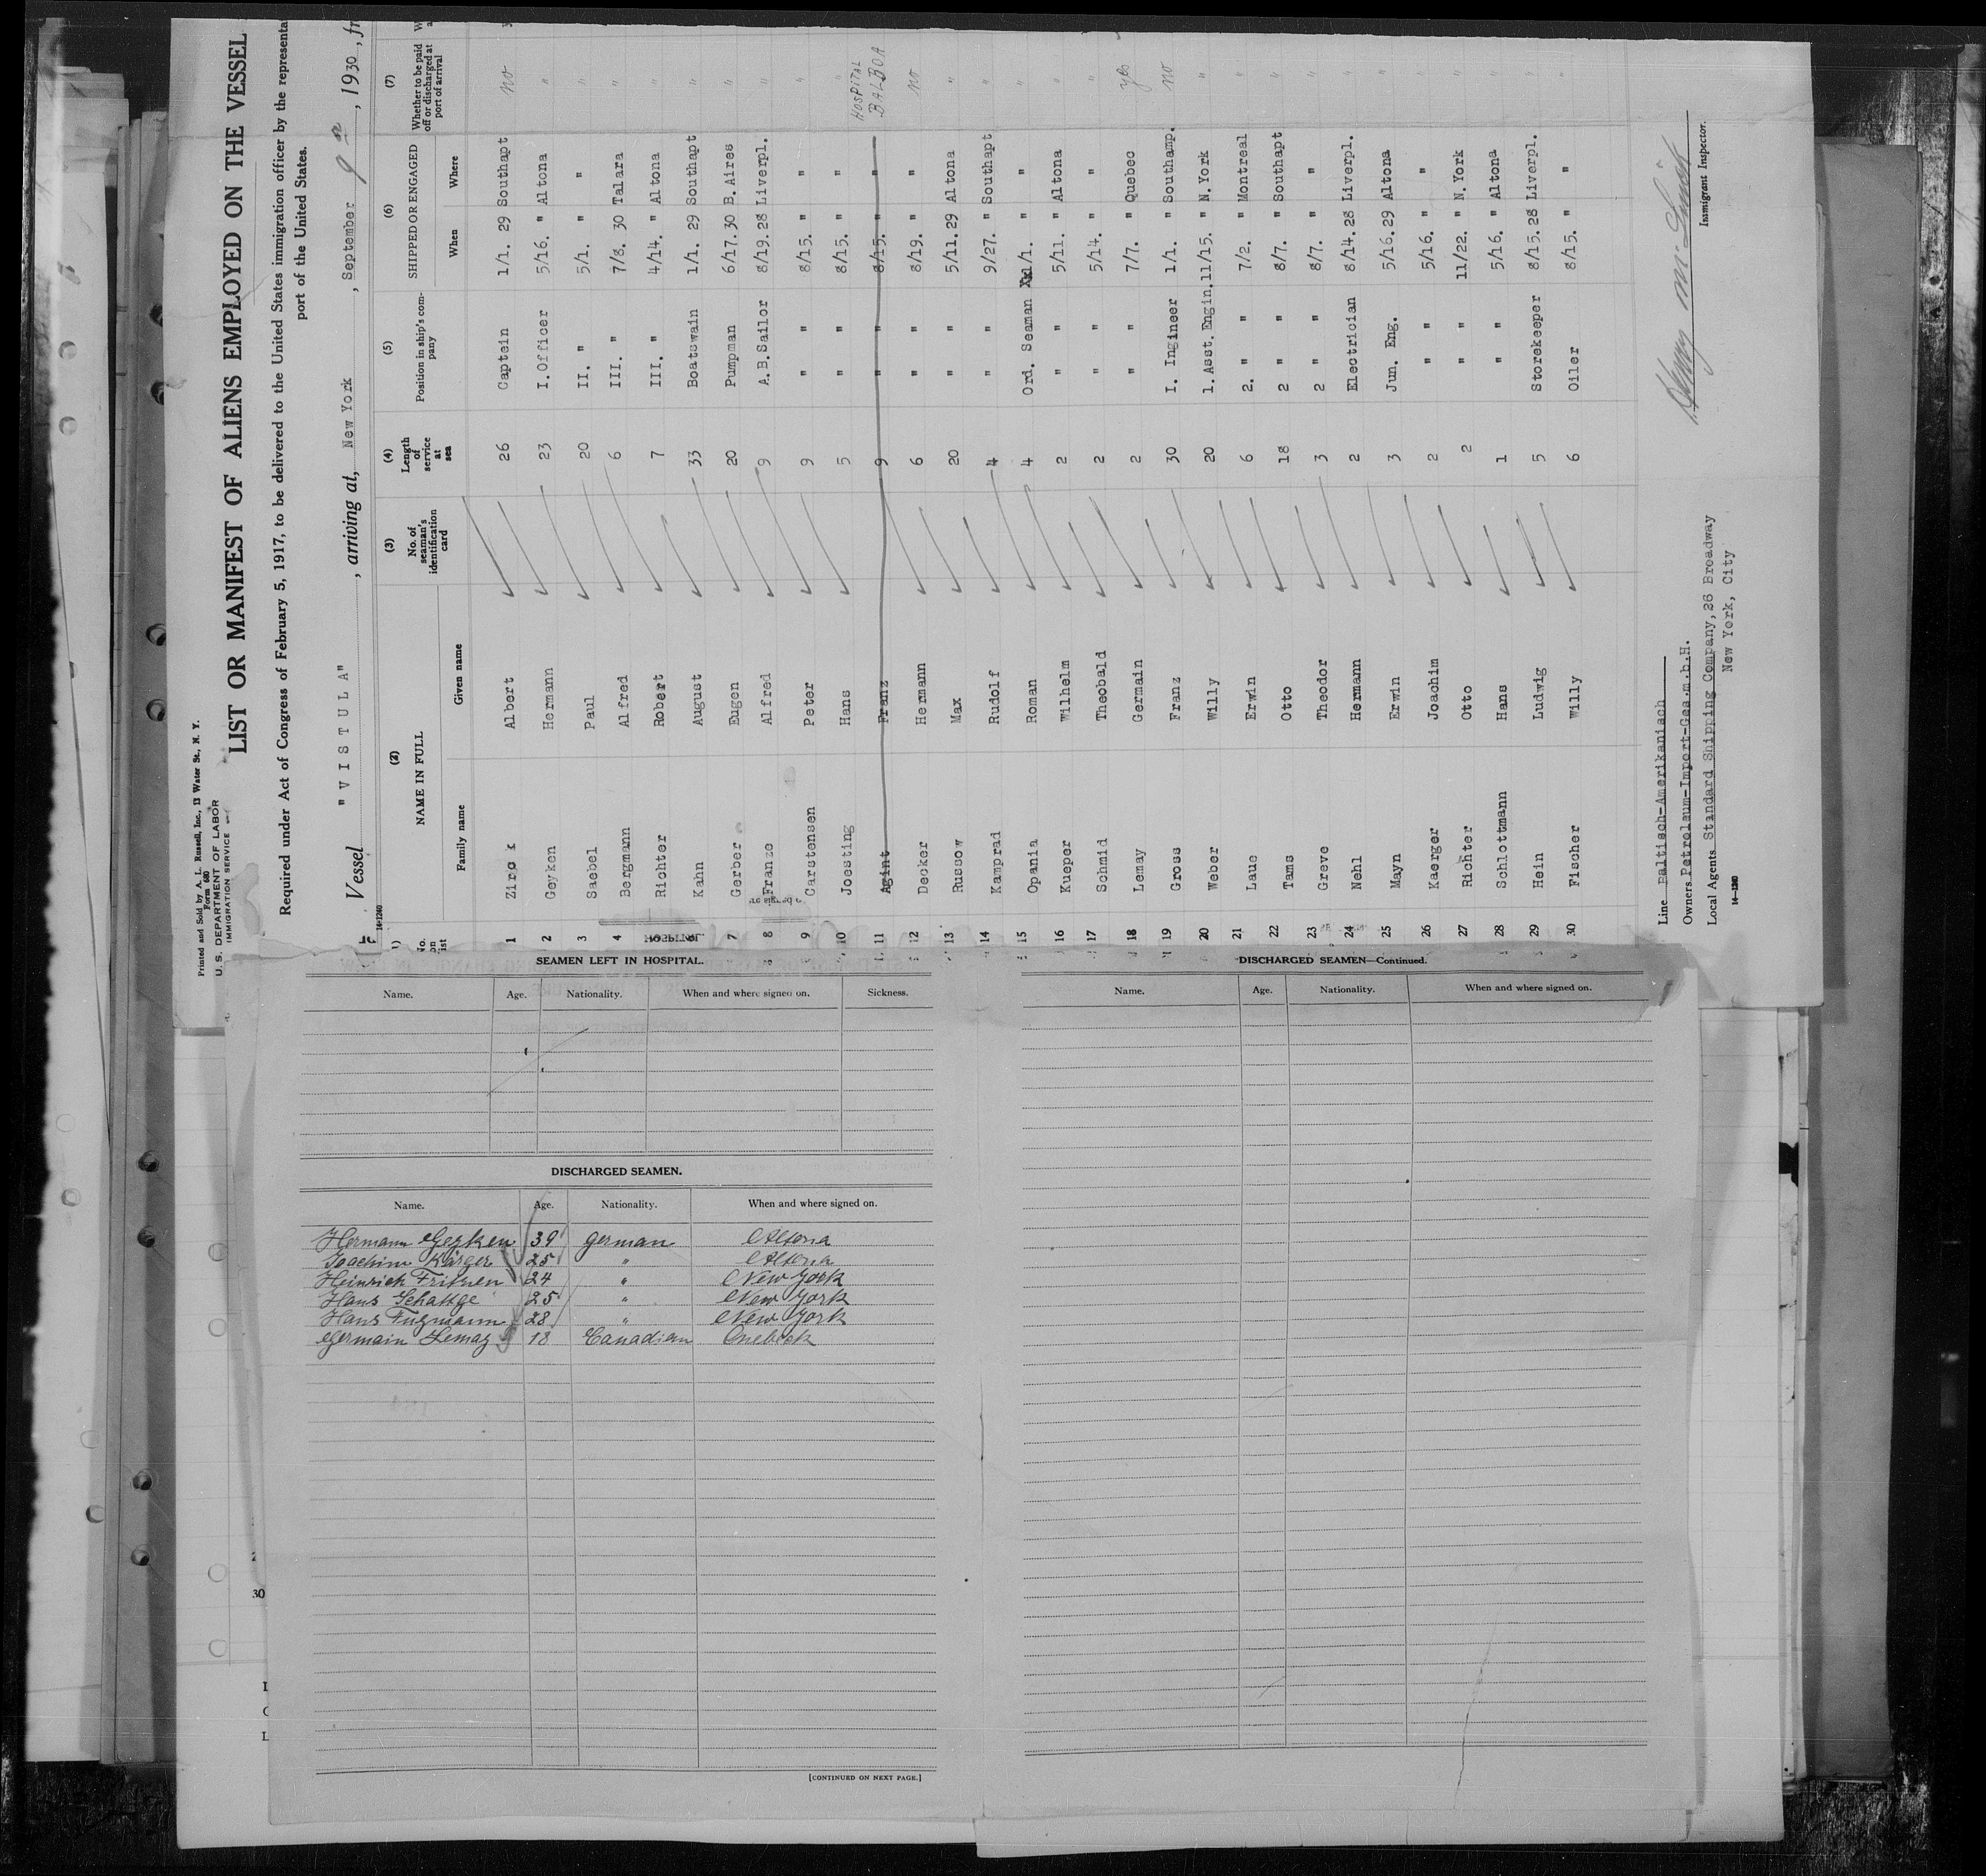 Printed and Sold by A. L. Russell, Inc., 13 Water St., N. Y.
Form 680
U. S. DEPARTMENT OF LABOR
IMMIGRATION SERVICE
LIST OR MANIFEST OF ALIENS EMPLOYED ON THE VESSEL
Required under Act of Congress of February 5, 1917, to be delivered to the United States immigration officer by the representa
port of the United States.
Vessel "VISTULA", arriving at, New York, September 9, 1930, fr
14-1240
(2) (3) (4) (5) (6) (7)
NAME IN FULL No. of seaman's identification card Length of service at sea Position in ship's company SHIPPED OR ENGAGED Whether to be paid off or discharged at port of arrival
Family name Given name When Where
1 Albert 26 Captein 1/1. 29 Southapt no
2 Geyken Hermann 23 I.Officer 5/16. " Altona "
3 Saebel Paul 20 II. " 5/1. " " "
4 Bergmann Alfred 6 III. " 7/8. 30 Talara "
5 Richter Robert 7 III. " 4/14. " Altona "
6 Kahn August 33 Boatswain 1/1. 29 Southapt "
7 Gerber Eugen 20 Pumpman 6/17. 30 B.Aires "
8 Franze Alfred 9 A.B.Sailor 8/19. 28 Liverpl. "
9 Carstensen Peter 9 " " 8/15. " " "
10 Joesting Hans 5 " " 8/15. " " "
11 Agint Franz 9 " " 8/15. " " HOSPITAL BALBOA
12 Decker Hermann 6 " " 8/19. " " no
13 Russow Max 20 " " 5/11. 29 Altona "
14 Kamprad Rudolf 4 " " 9/27. " Southapt "
15 Opania Roman 4 Ord. Seaman 1/1. " " "
16 Kueper Wilhelm 2 " " 5/11. " Altona "
17 Schmid Theobald 2 " " 5/14. " " "
18 Lemay Germain 2 " " 7/7. " Quebec yes
19 Gross Franz 30 I. Ingineer 1/1. " Southamp. no
20 Weber Willy 20 1. Asst. Engin. 11/15. " N.York "
21 Laue Erwin 6 2. " " 7/2. " Montreal "
22 Tams Otto 18 2 " " 8/7. " Southapt "
23 Greve Theodor 3 2 " " 8/7. " " "
24 Nehl Hermann 2 Electrician 8/14. 28 Liverpl. "
25 Mayn Erwin 3 Jun. Eng. 5/16. 29 Altona "
26 Kaerger Joachim 2 " " 5/16. " " "
27 Richter Otto 2 " " 11/22. " N.York "
28 Schlottmann Hans 1 " " 5/16. " Altona "
29 Hein Ludwig 5 Storekeeper 8/15. 28 Liverpl. "
30 Fischer Willy 6 Oiler 8/15. " " "
Line Baltisch-Amerikanisch
Owners Petroleum-Import-Ges.m.b.H.
Local Agents Standard Shipping Company, 26 Broadway
New York, City
14-1240
Immigrant Inspector.
SEAMEN LEFT IN HOSPITAL.
Name. Age. Nationality. When and where signed on. Sickness.
DISCHARGED SEAMEN.
Name. Age. Nationality. When and where signed on.
Hermann Geyken 39 german Altona
Joachim Kärger 25 " Altona
Heinrich 24 " New York
Hans Schattge 25 " New York
Hans Fugmann 28 " New York
Germain Lemay 18 Canadian Quebeck
[CONTINUED ON NEXT PAGE.]
DISCHARGED SEAMEN—Continued.
Name. Age. Nationality. When and where signed on.
30